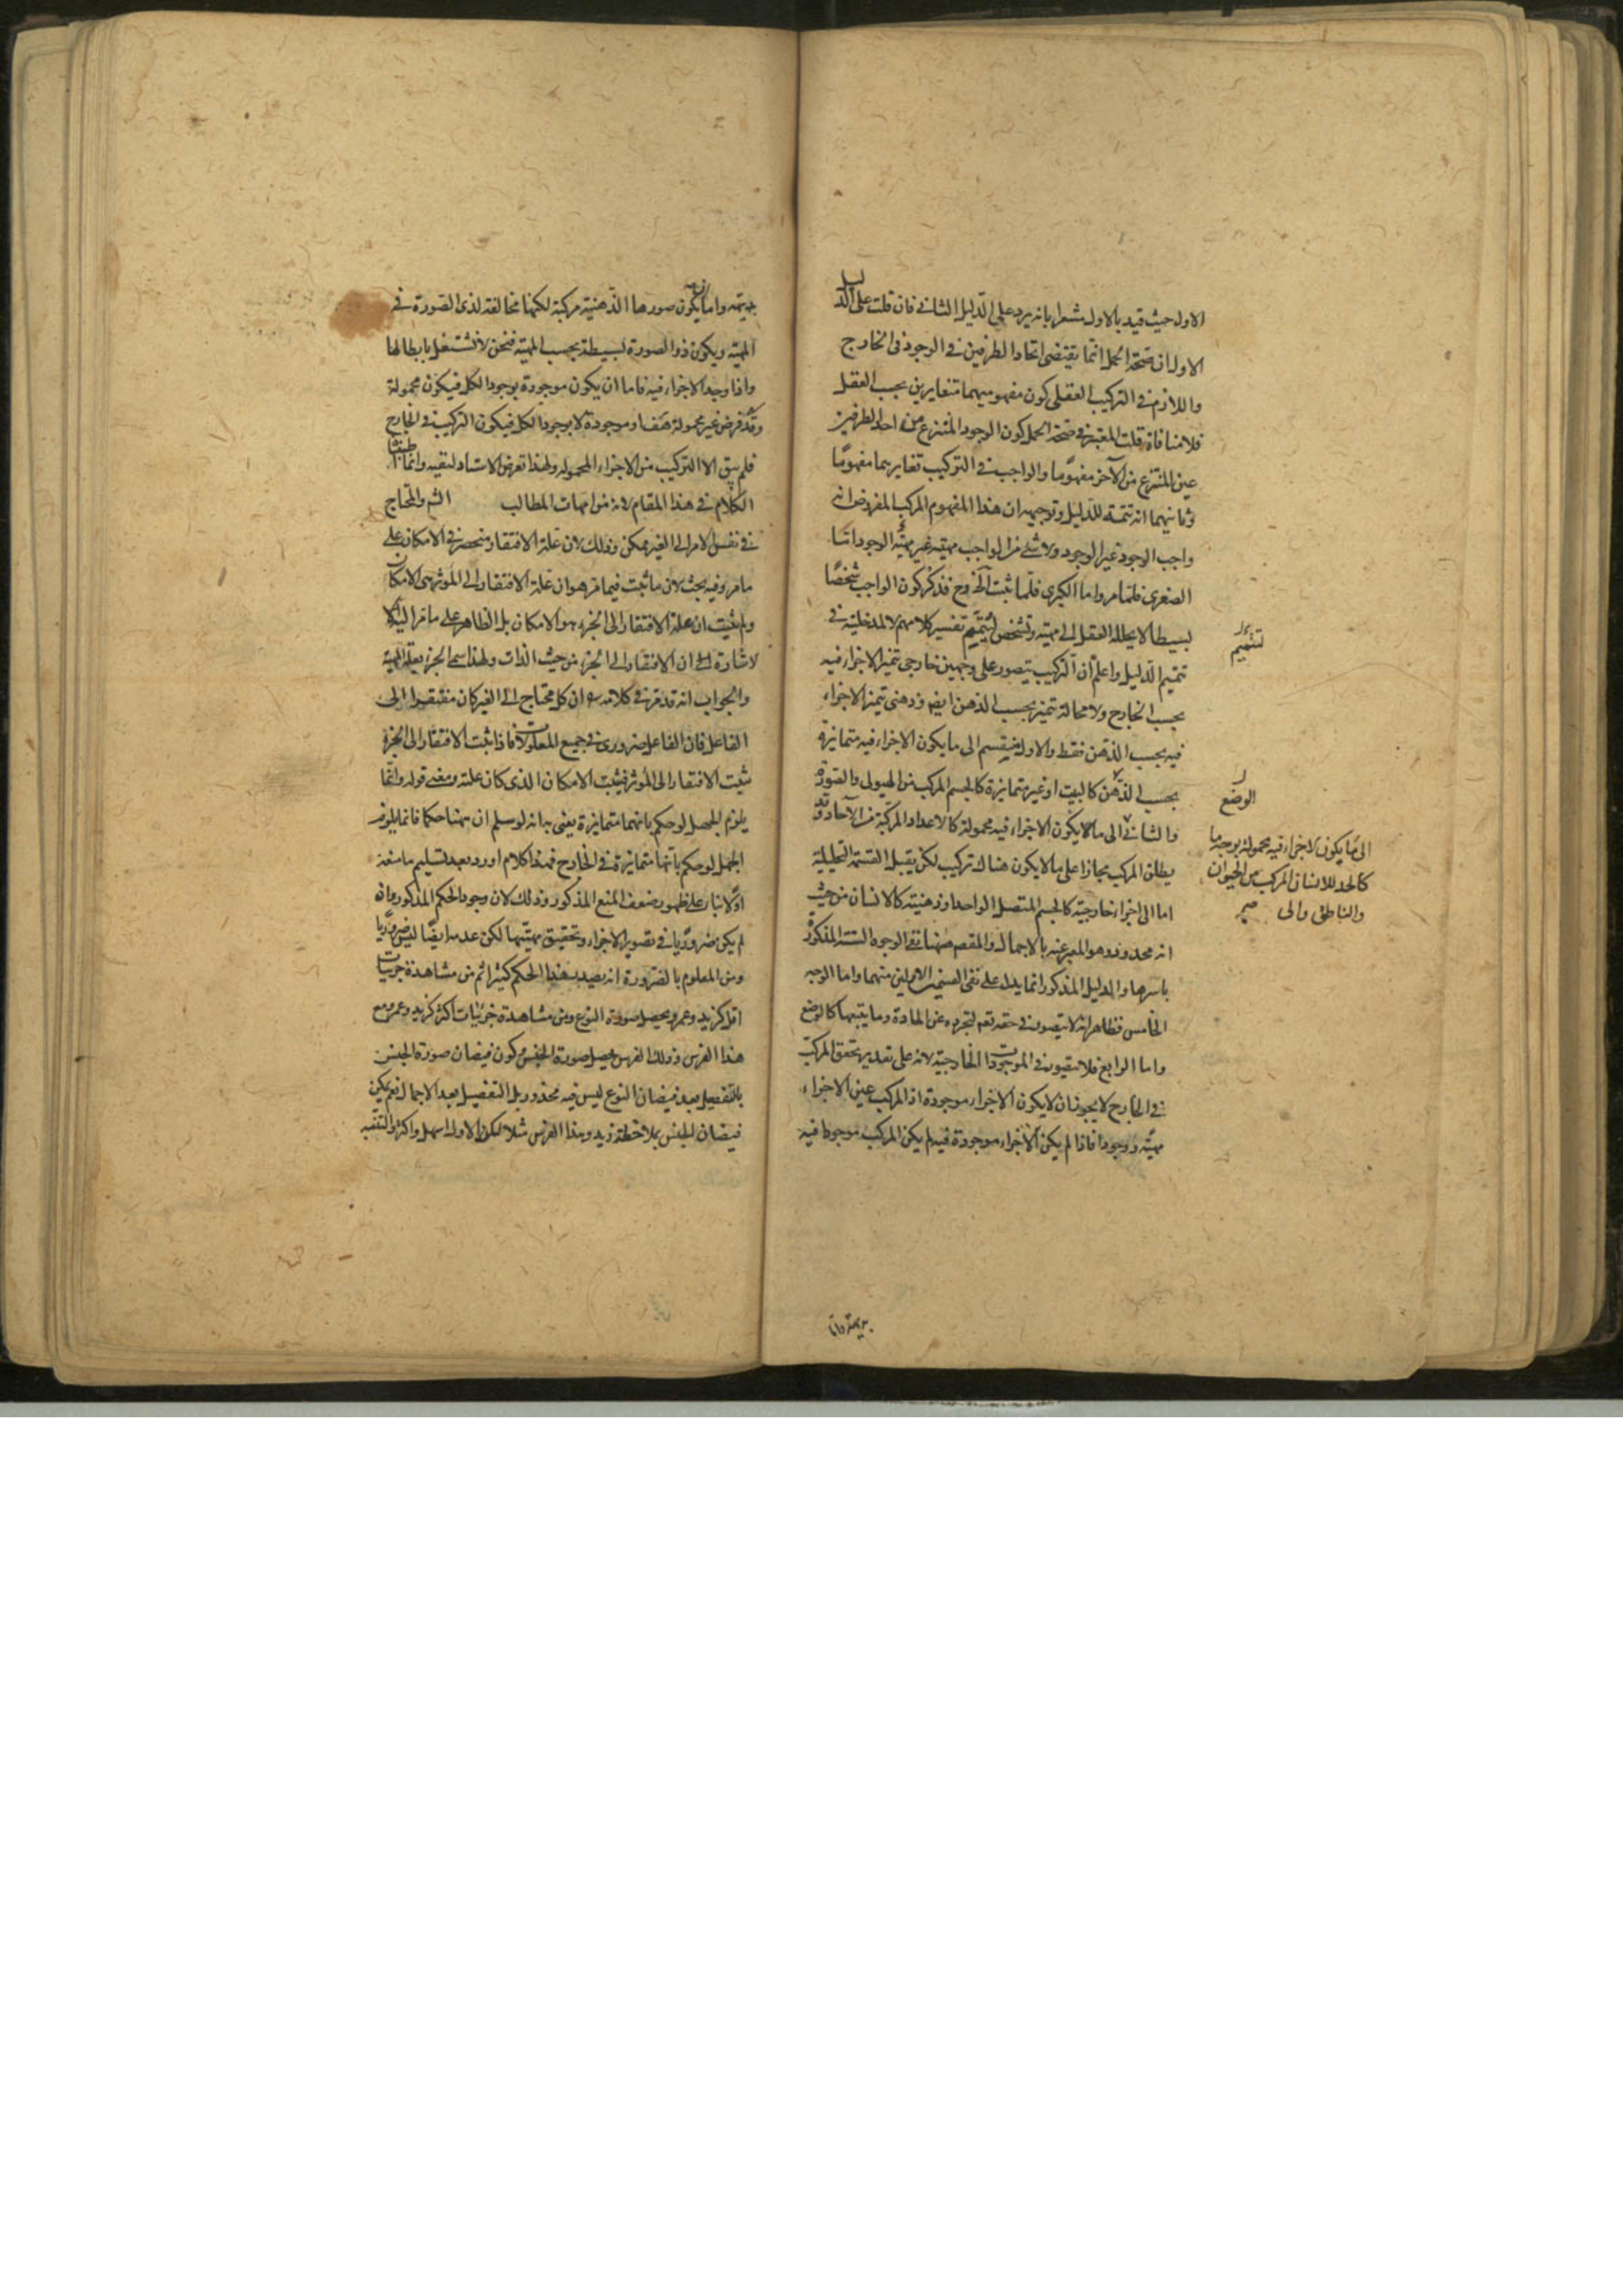 الاول حيث قيد بالاول مشعرا بانه يرد على الدليل الثاني فان قلت على الدليل
الاول ان صحة الحمل انما يقتضى اتحاد الطرفين في الوجود في الخارج
واللازم في التركيب العقلي كون مفهوميهما متغايرين بحسب العقل
فلا منافاة قلت المعتبر في صحة الحمل كون الوجود المنتزع من احد الطرفين
عين المنتزع من الآخر مفهومًا والواجب في التركيب تغايرهما مفهومًا
وثانيهما انه تتمة للدليل وتوجيهه ان هذا المفهوم المركب المفروض انه
واجب الوجود غير الوجود ولا شئ من الواجب مهيته غير مهية الوجود اما
الصغرى فلما مر واما الكبرى فلما ثبت آنفا وح فذكر كون الواجب شخصًا
بسيطا لا يحلله العقل الى مهية وتشخص لتتميم تفسير كلامهم لا لمدخليته في
تتميم الدليل واعلم ان التركيب يتصور على وجهين خارجي تتميز الاجزاء فيه
بحسب الخارج ولا محالة تتميز بحسب الذهن ايضا وذهنى تتميز الاجزاء
فيه بحسب الذهن فقط والاول ينقسم الى ما يكون الاجزاء فيه متمايزة
بحسب الذهن كالبيت او غير متمايزة كالجسم المركب من الهيولى والصورة
والثاني الى ما لا يكون الاجزاء فيه محمولة كالاعداد المركبة من الآحاد وقد
يطلق المركب مجازا على ما لا يكون هناك تركيب لكن يقبل القسمة التحليلية
اما الى اجزاء خارجية كالجسم المتصل الواحد او ذهنية كالانسان من حيث
انه محدود وهو المعبر عنه بالاجمال والمقصد ههنا نفى الوجوه الستة المذكورة
باسرها والدليل المذكور انما يدل على نفى القسمين الاولين منهما واما الوجه
الخامس فظاهر انه لا يتصور في حقه تعم لتجرده عن المادة وما يتبعها كالوضع
واما الرابع فلا يتصور في الموجودات الخارجية لانه على تقدير تحقق المركب
في الخارج لا يجوز ان لا يكون الاجزاء موجودة اذ المركب عين الاجزاء
مهية ووجودا فاذا لم يكن الاجزاء موجودة فيه لم يكن المركب موجودا فيه
لتتميم
الوضع
الى ما يكون الاجزاء فيه محمولة بوجه ما
كالحد للانسان المركب من الحيوان
والناطق والى صح
بديهته واما
بديهته واما ان يكون صورها الذهنية مركبة لكنها مخالفة لذى الصورة في
المهية ويكون ذو الصورة بسيطة بحسب المهية فنحن لا نشتغل بابطالها
واذا وجد الاجزاء فيه فاما ان يكون موجودة بوجود الكل فيكون محمولة
وقد فرض غير محمولة هف او موجودة لا بوجود الكل فيكون التركيب في الخارج
فلم يبق الا التركيب من الاجزاء المحمولة ولهذا تعرض الاستاد لنفيه وانما اطنبنا
الكلام في هذا المقام لانه من امهات المطالب الشم والمحتاج
في نفس الامر الى الغير ممكن وذلك لان علة الافتقار منحصرة في الامكان على
ما مر وفيه بحث لان ما ثبت فيما مر هو ان علة الافتقار الى المؤثر هى الامكان
ولم يثبت ان علة الافتقار الى الجزء هو الامكان بل الظاهر على ما مر اليه
الاشارة الى ان الافتقار الى الجزء من حيث الذات ولهذا سمى الجزء بعلة المهية
والجواب انه قد قرر في كلامه ان كل محتاج الى الغير كان مفتقرا الى
الفاعل فان الفاعل ضروري في جميع المعلولات فاذا ثبت الافتقار الى الجزء
يثبت الافتقار الى المؤثر فيثبت الامكان الذى كان علته ومعنى قوله وانما
يلزم الجهل لو حكم بانهما متمايزة يعنى به انه لو سلم ان ههنا حكما فانما يلزم
الجهل لو حكم بانها متمايزة في الخارج فهذا كلام اورد بعد تسليم ما منعه
اولا بناء على ظهور ضعف المنع المذكور وذلك لان وجود الحكم المذكور وان
لم يكن ضروريًا في تصوير الاجزاء وتحقيق مهيتها لكن عدمه ايضًا ليس ضروريًا
ومن المعلوم بالضرورة انه يصدر هذا الحكم كثيرا ثم من مشاهدة جزئيات
اقل كزيد وعمرو يحصل صورة النوع ومن مشاهدة جزئيات اكثر كزيد وعمرو مع
هذا الفرس وذلك الفرس يحصل صورة الجنس وكون فيضان صورة الجنس
بالتفصيل بعد فيضان النوع ليس فيه محذور بل التفصيل بعد الاجمال نعم يمكن
فيضان الجنس بملاحظة زيد وهذا الفرس مثلا لكن الاول اسهل واكثر والتنبيه